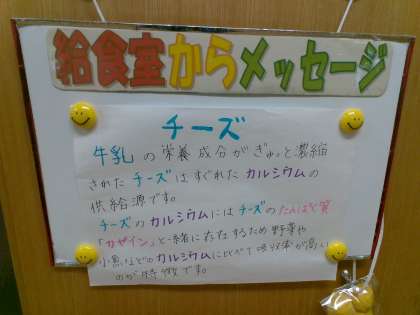 給食室からメッセージ
チーズ
牛乳の栄養成分がぎゅっと濃縮
されたチーズはすぐれたカルシウムの
供給源です。
チーズのカルシウムにはチーズのたんぱく質
「カゼイン」と一緒になるため野菜や
小魚などのカルシウムに比べて吸収率が高い
のが特徴です。